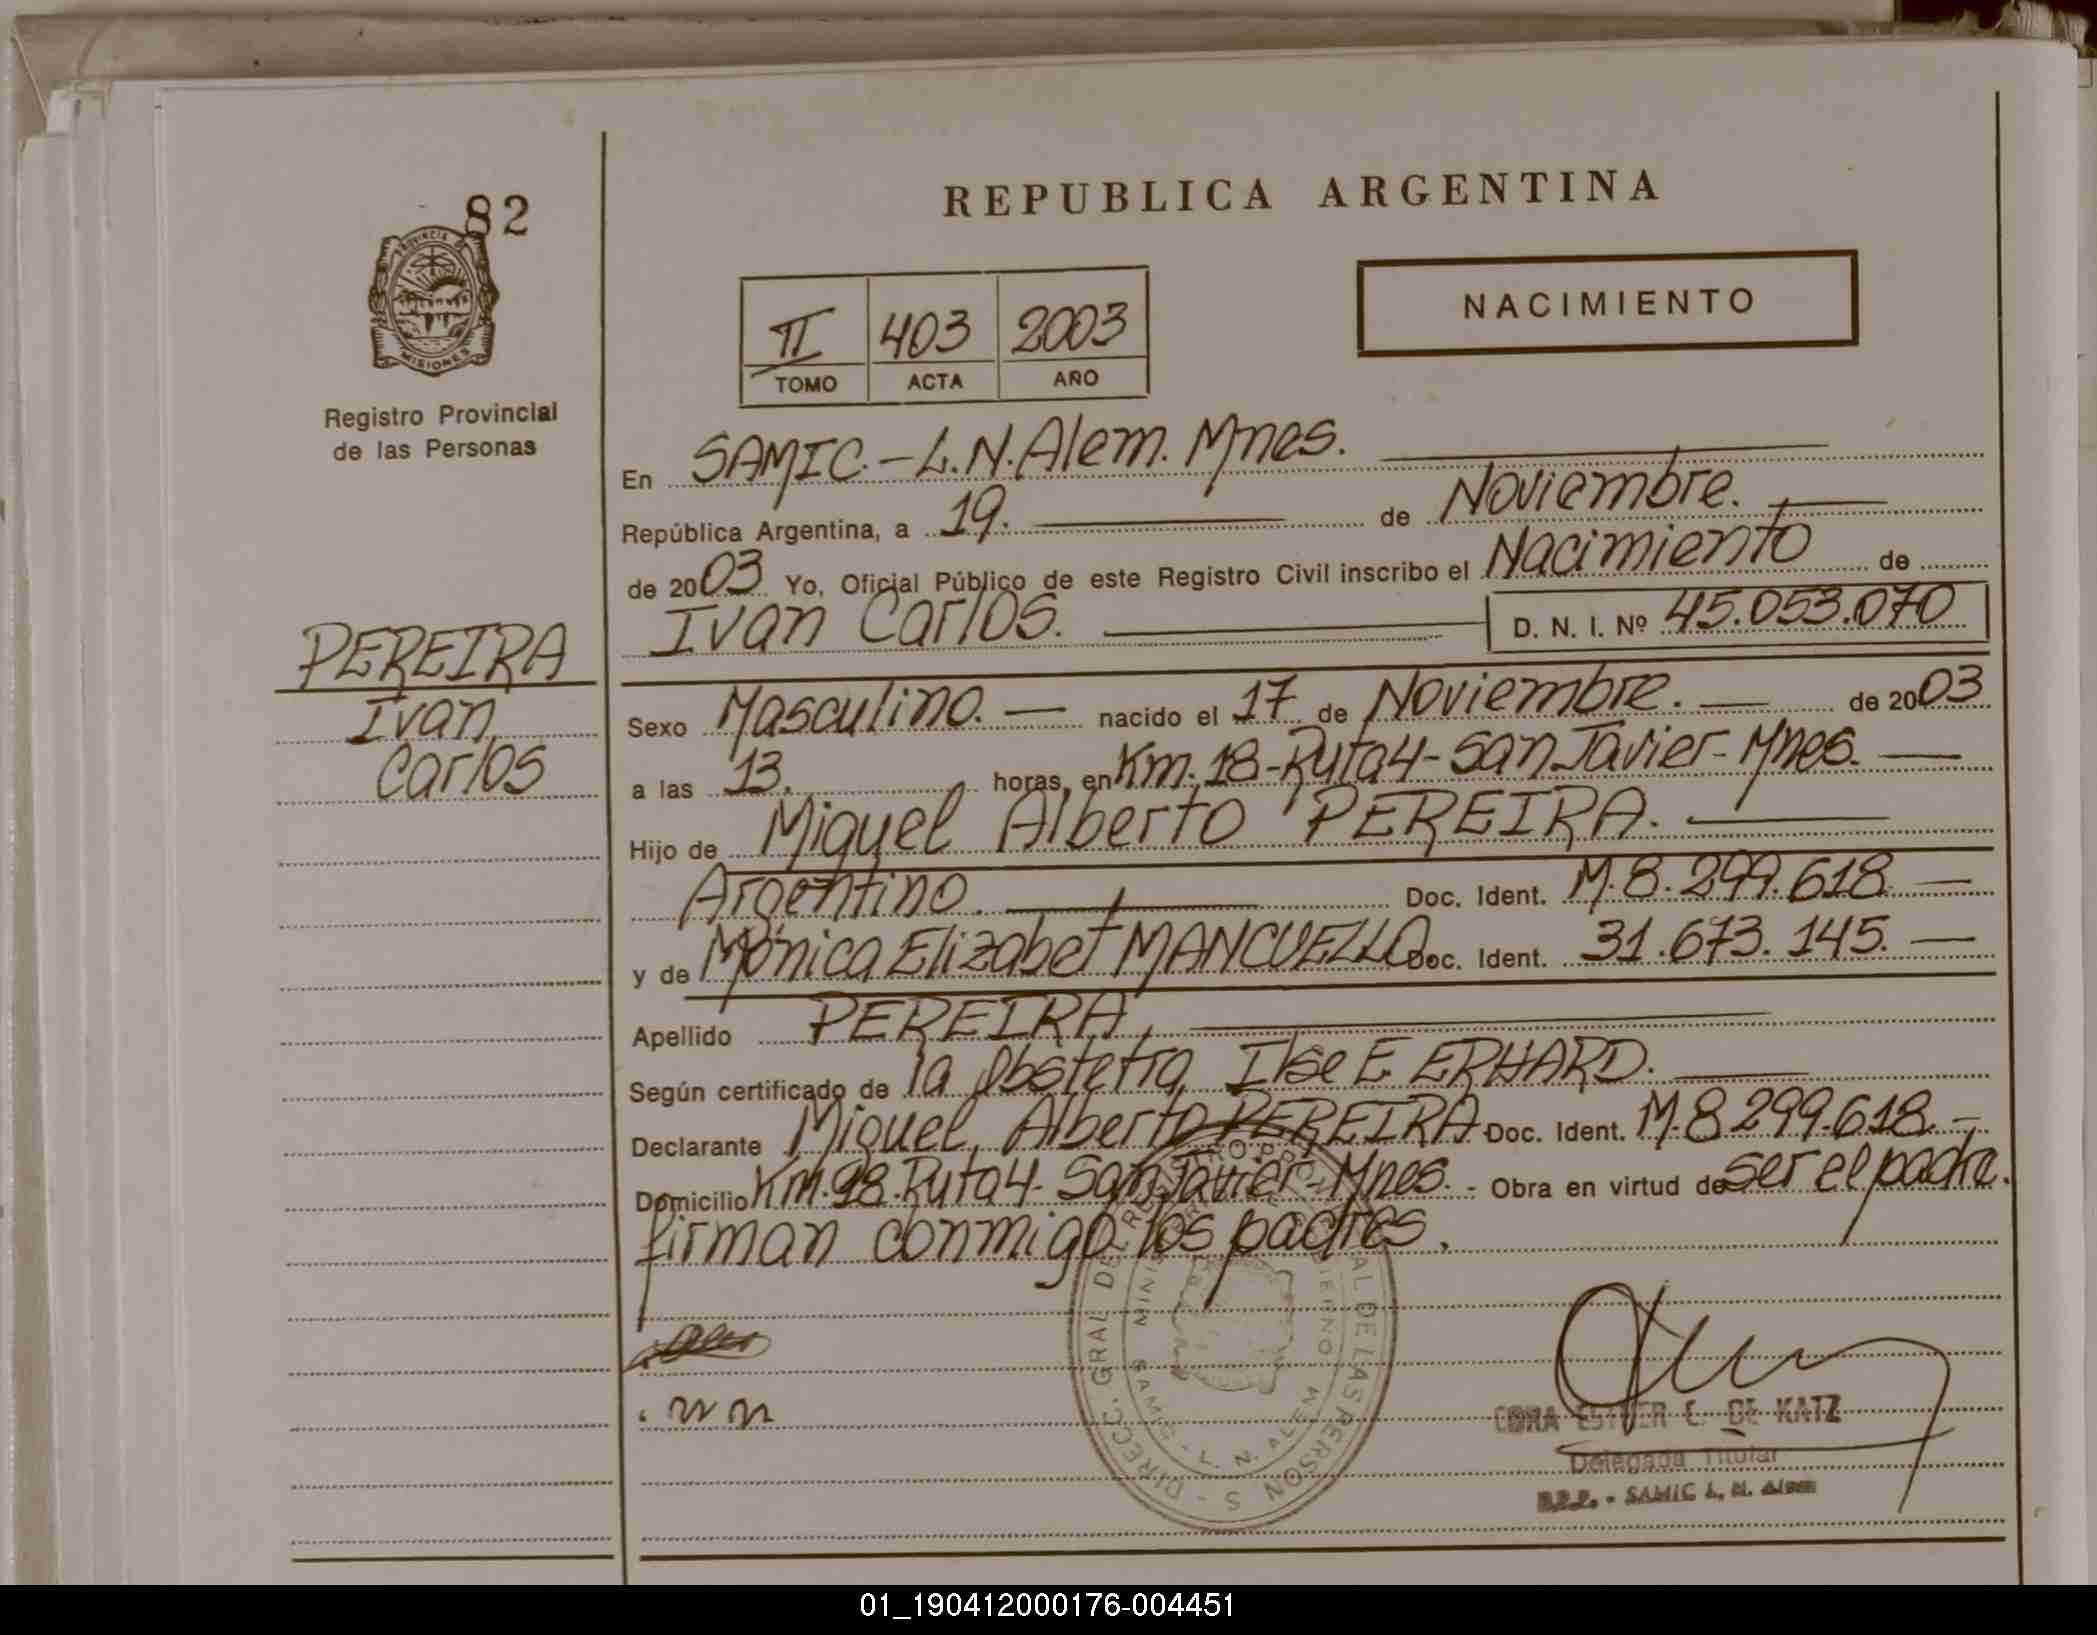 82
PROVINCIA DE
MISIONES
Registro Provincial
de las Personas
PEREIRA
Ivan
Carlos
REPUBLICA ARGENTINA
II 403 2003
TOMO ACTA AÑO
NACIMIENTO
En SAMIC.-L.N.Alem. Mnes.
República Argentina, a 19. de Noviembre.
de 2003 Yo, Oficial Público de este Registro Civil inscribo el Nacimiento de
Ivan Carlos. D. N. I. Nº 45.053.070
Sexo Masculino. nacido el 17 de Noviembre. de 2003
a las 13. horas, en Km. 18-Ruta 4-San Javier-Mnes.
Hijo de Miguel Alberto PEREIRA.
Argentino. Doc. Ident. M.8.299.618
y de Mónica Elizabet MANCUELLO Doc. Ident. 31.673.145.
Apellido PEREIRA,
Según certificado de la Obstetra Ilse E ERHARD.
Declarante Miguel Alberto PEREIRA Doc. Ident. M.8299.618.-
Domicilio Km.18.Ruta 4-San Javier-Mnes. - Obra en virtud de ser el padre.
firman conmigo los padres.
DIRECC. GRAL DE REGISTRO PROVINCIAL DE LAS PERSONAS
SAMIC - L. N. ALEM
ESTHER E. DE KATZ
Delegada Titular
R.P.P. - SAMIC L. N. Alem
01_190412000176-004451